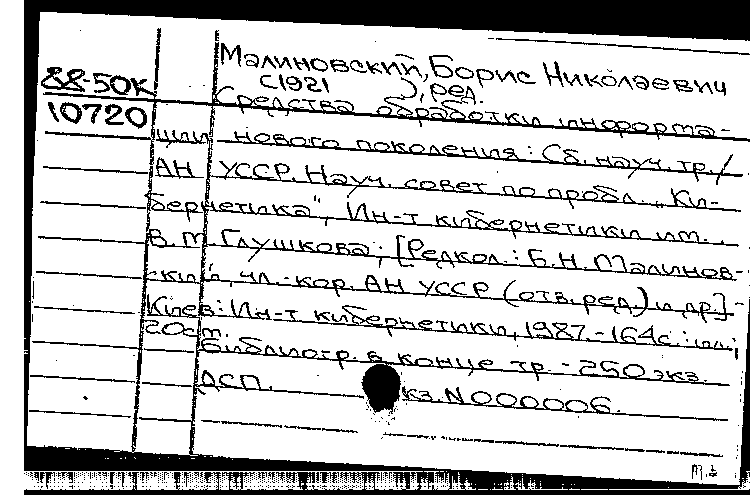 Малиновский, Борис Николаевич
88-50К
(1921 ), ред.
10720
Средства обработки информа-
ции нового поколения: Сб. науч. тр. /
АН УССР. Науч. совет по пробл. „Ки-
бернетика", Ин-т кибернетики им.
В.М. Глушкова; [Редкол.: Б.Н. Малинов-
ский, чл.-кор. АН УССР (отв. ред.) и др.] -
Киев: Ин-т кибернетики, 1987. - 164с.: ил.;
20см.
Библиогр. в конце тр. - 250 экз.
ДСП. кз. N000006.